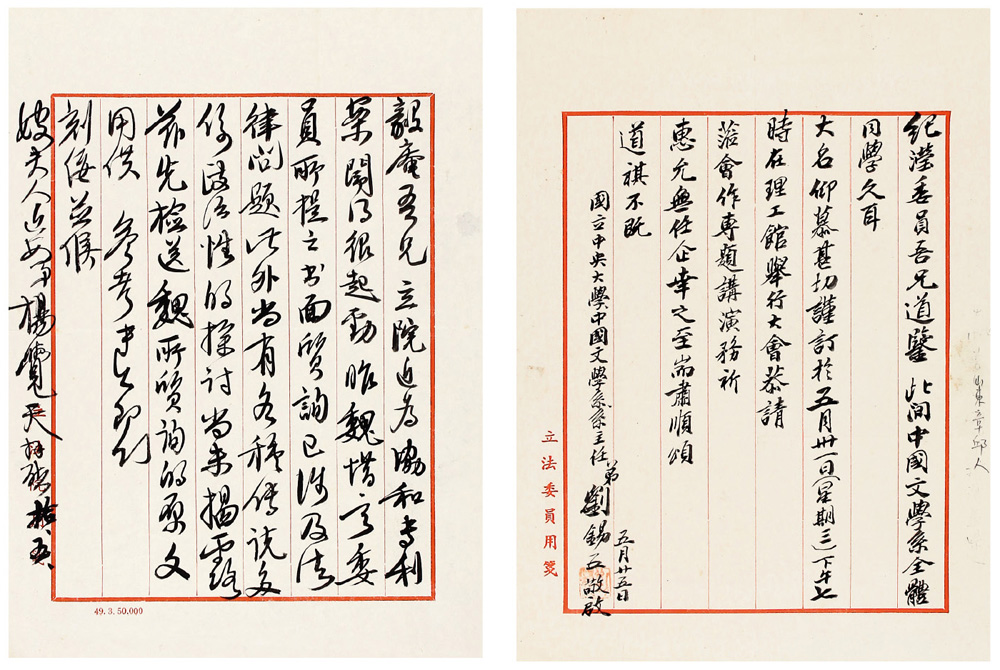 毅庵吾兄 立院近為協和專利
案鬧得很起勁昨魏惜言委
員所提之書面質詢已涉及法
律問題此外尚有各種傳說多
係政治性的探討尚未揭露
茲先檢送魏所質詢的原文
用供 參考專此即頌
刻佳並候
嫂夫人近好 弟楊覺天拜啟 五、
49.3.50,000
紀瀅委員吾兄道鑒 此間中國文學系全體
同學久耳
大名仰慕甚切謹訂於五月卅一日(星期三)下午七
時在理工館舉行大會恭請
蒞會作專題講演務祈
惠允無任企幸之至耑肅順頌
道祺不既
國立中央大學中國文學系系主任 弟劉錫五敬啟
五月廿五日
立法委員用箋
山東章邱人